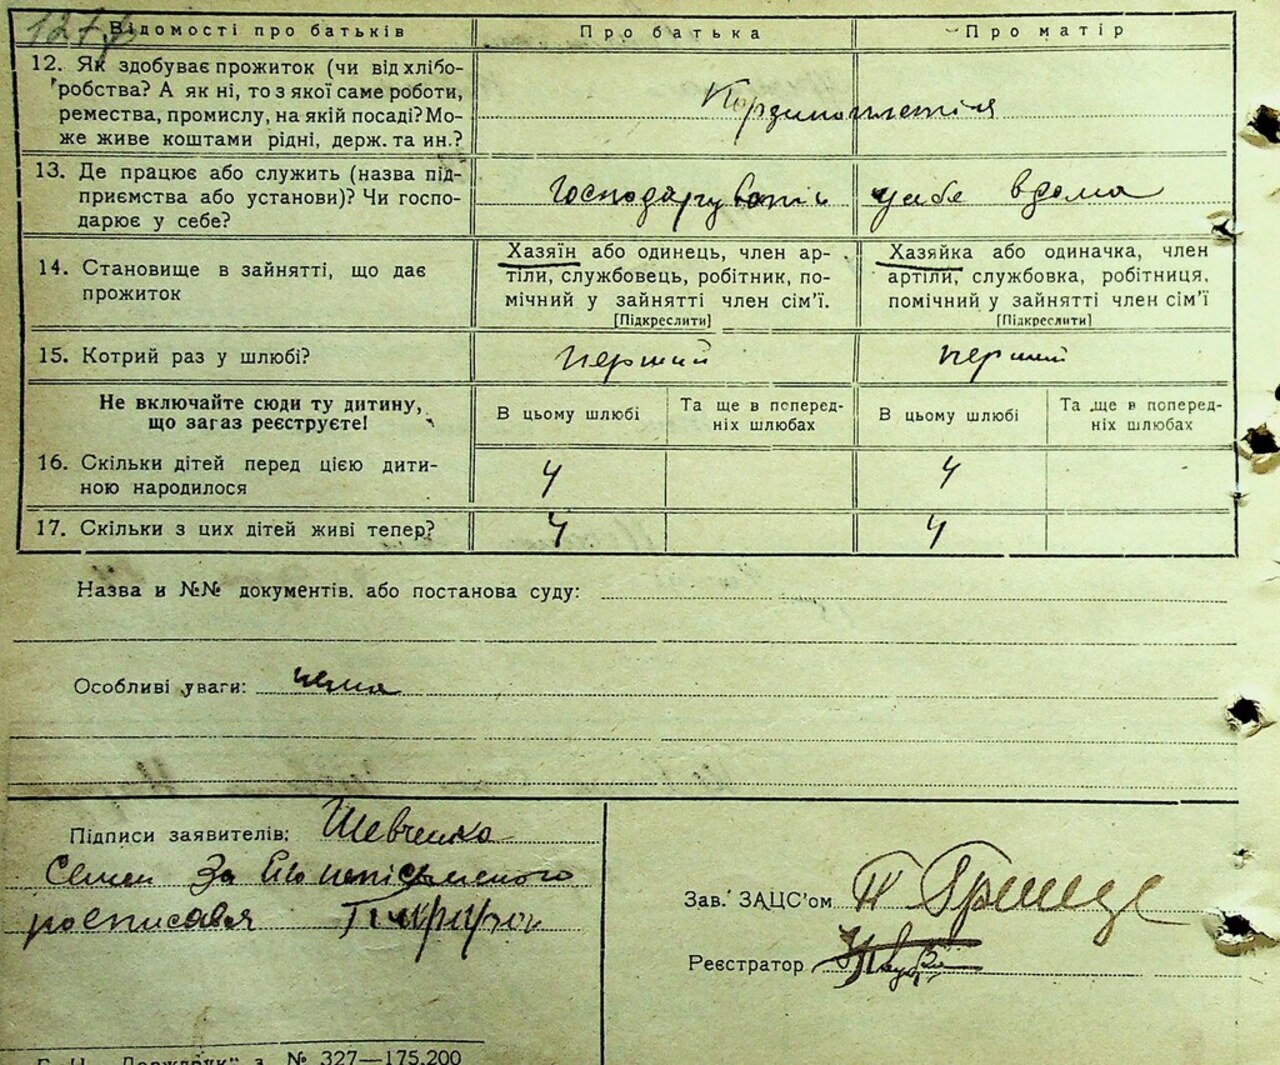 127
Відомості про батьків Про батька Про матір
12. Як здобуває прожиток (чи від хлібо-
робства? А як ні, то з якої саме роботи,
ремества, промислу, на якій посаді? Мо-
же живе коштами рідні, держ. та ин.?
13. Де працює або служить (назва під-
приємства або установи)? Чи госпо-
дарює у себе?
у себе вдома
14. Становище в зайнятті, що дає
прожиток
Хазяїн або одинець, член ар-
тіли, службовець, робітник, по-
мічний у зайнятті член сім'ї.
[Підкреслити]
Хазяйка або одиначка, член
артіли, службовка, робітниця,
помічний у зайнятті член сім'ї
[Підкреслити]
15. Котрий раз у шлюбі? перший перший
Не включайте сюди ту дитину,
що загаз реєструєте!
В цьому шлюбі
Та ще в поперед-
ніх шлюбах
В цьому шлюбі
Та ще в поперед-
ніх шлюбах
16. Скільки дітей перед цією дити-
ною народилося
4 4
17. Скільки з цих дітей живі тепер? 4 4
Назва и №№ документів, або постанова суду:
Особливі уваги: нема
Підписи заявителів: Шевченко
Семен За його неписьменного
росписався
Зав. ЗАЦС'ом
Реєстратор
№ 327—175.200